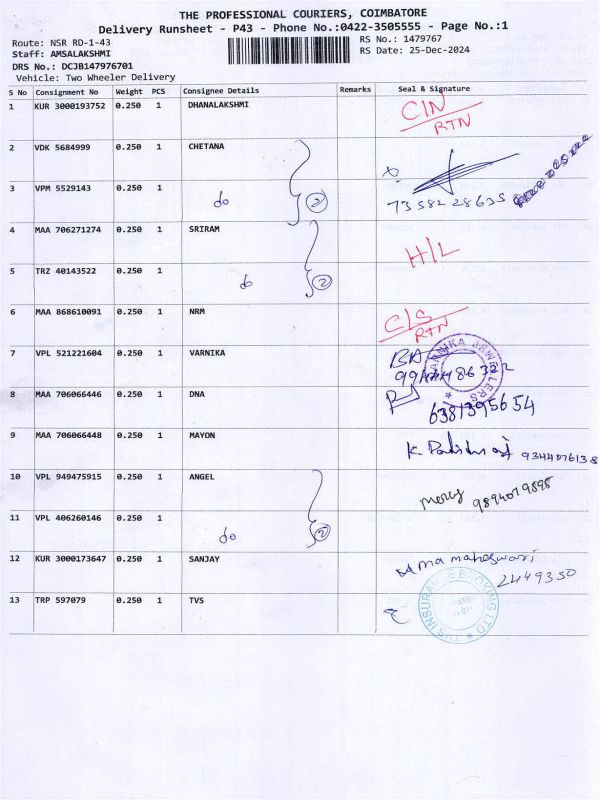 THE PROFESSIONAL COURIERS, COIMBATORE
Delivery Runsheet - P43 - Phone No.:0422-3505555 - Page No.:1
Route: NSR RD-1-43 RS No.: 1479767
Staff: AMSALAKSHMI RS Date: 25-Dec-2024
DRS No.: DCJB147976701
Vehicle: Two Wheeler Delivery
S No Consignment No Weight PCS Consignee Details Remarks Seal & Signature
1 KUR 3000193752 0.250 1 DHANALAKSHMI C/N
RTN
2 VDK 5684999 0.250 1 CHETANA
3 VPM 5529143 0.250 1 do 2 73582 28635
4 MAA 706271274 0.250 1 SRIRAM H/L
5 TRZ 40143522 0.250 1 do 2
6 MAA 868610091 0.250 1 NRM C/S
RTN
7 VPL 521221604 0.250 1 VARNIKA VARNIKA JEWELLERS
8 MAA 706066446 0.250 1 DNA 6381395654
9 MAA 706066448 0.250 1 MAYON 9344076138
10 VPL 949475915 0.250 1 ANGEL mercy 9894079898
11 VPL 406260146 0.250 1 do 2
12 KUR 3000173647 0.250 1 SANJAY uma maheswari
2449350
13 TRP 597079 0.250 1 TVS TVS INSURANCE BROKING LTD